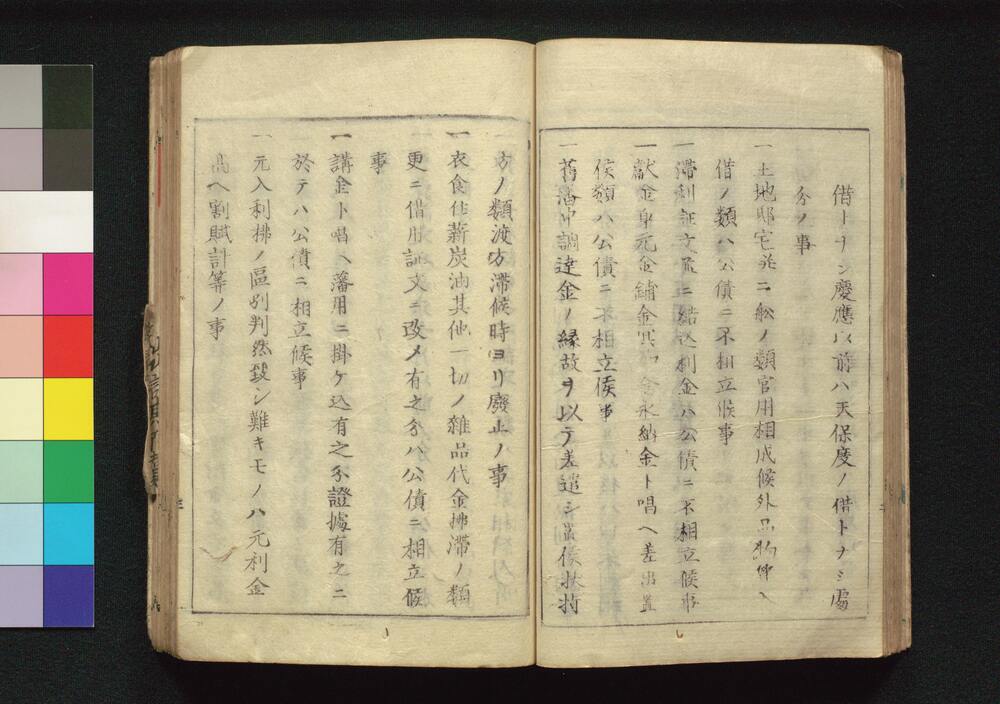 借トナシ慶應以前ハ天保度ノ借トナシ處
分ノ事
一土地邸宅並ニ舩ノ類官用相成候外品物仲ヘ
借ノ類ハ公債ニ不相立候事
一滞利証文面ニ結込利金ハ公債ニ不相立候事
一献金身元金鋪金冥加金永納金ト唱ヘ差出置
候類ハ公債ニ不相立候事
一舊藩中調達金ノ縁故ヲ以テ差遣シ置候扶持
方ノ類渡方滞候時ヨリ廢止ノ事
一衣食住薪炭油其他一切ノ雜品代金拂滞ノ類
更ニ借用証文ニ改メ有之分ハ公債ニ相立候
事
一講金ト唱ヘ藩用ニ掛ケ込有之分證據有之ニ
於テハ公債ニ相立候事
一元入利拂ノ區別判然致シ難キモノハ元利金
高ヘ割賦計算ノ事